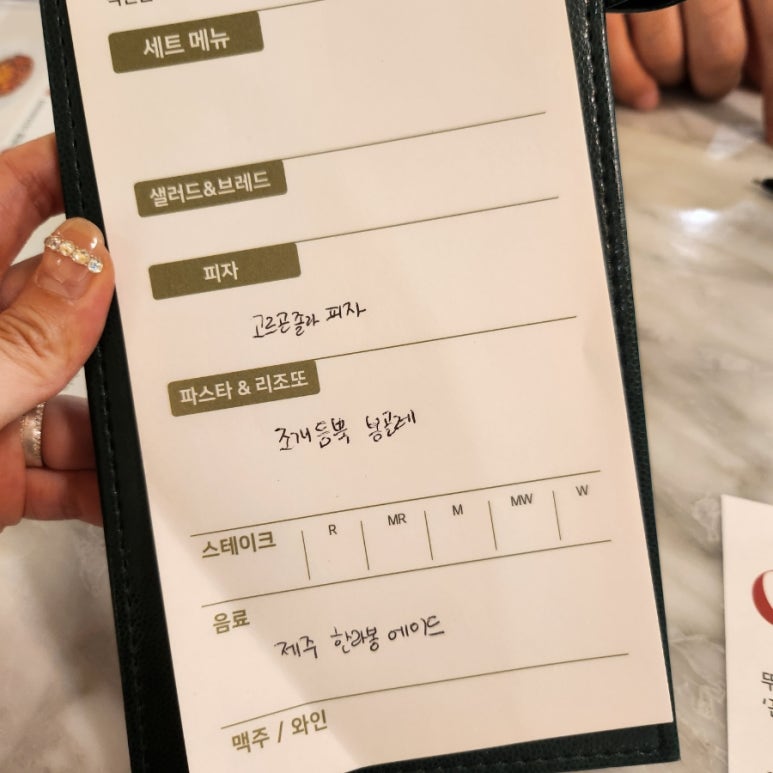 세트 메뉴
샐러드&브레드
피자
고르곤졸라 피자
파스타 & 리조또
조개듬뿍 봉골레
스테이크 R MR M MW W
음료
제주 한라봉 에이드
맥주 / 와인